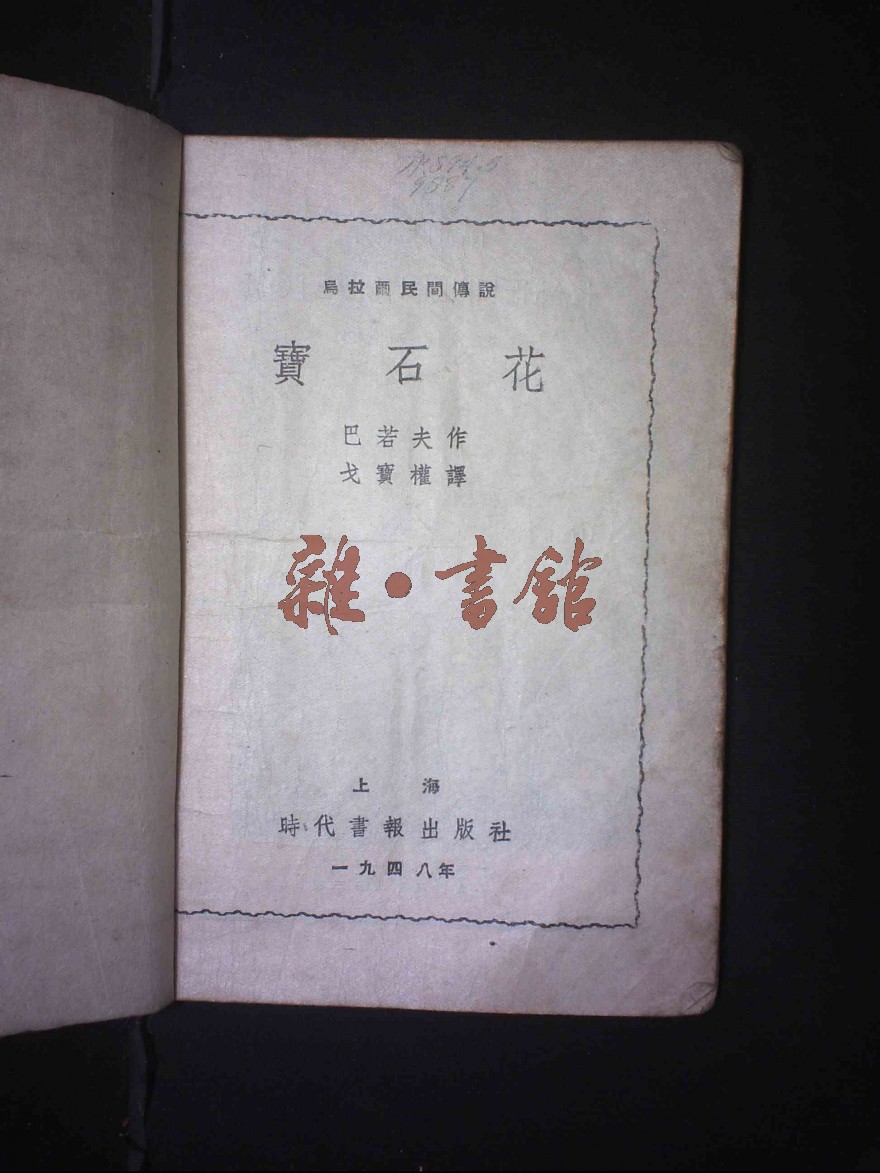 烏拉爾民間傳說
寶石花
巴若夫作
戈寶權譯
雜·書館
上海
時代書報出版社
一九四八年